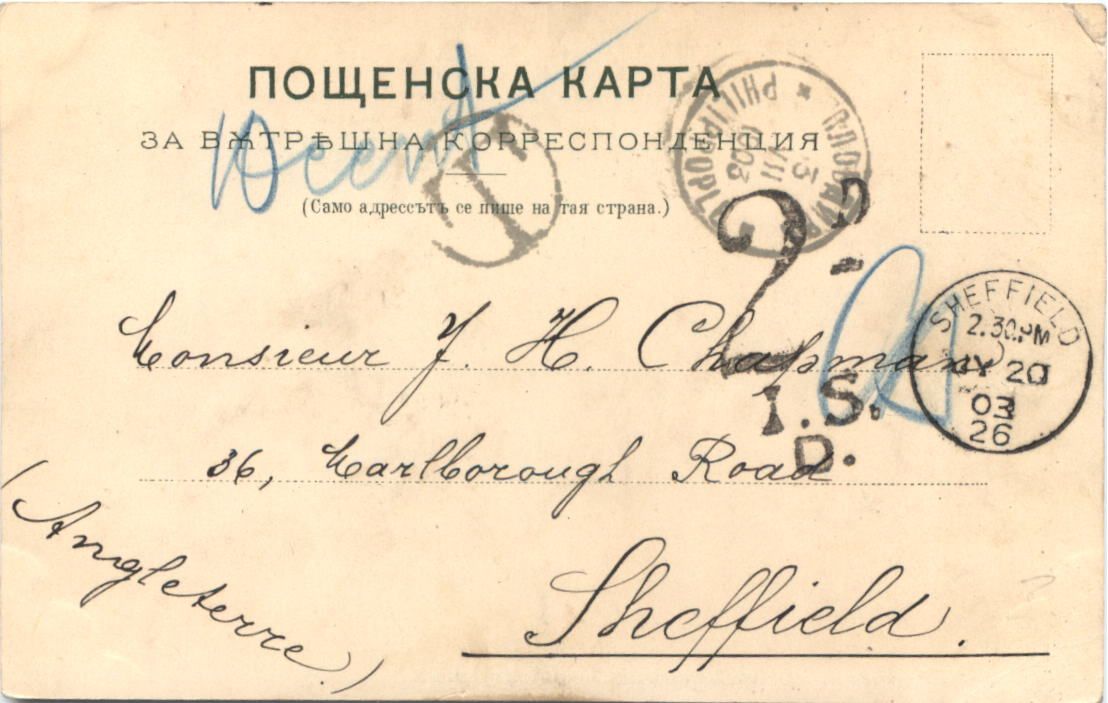 ПОЩЕНСКА КАРТА
ЗА ВѪТРѢШНА КОРРЕСПОНДЕНЦИЯ
(Само адрессътъ се пише на тая страна.)
T
PHILIPPOPOLI
13 VII 903
2D
I.S.
D.
SHEFFIELD
2.30.PM
JY 20
03
26
Monsieur J. H. Chapman
36, Marlborough Road
Sheffield.
(Angleterre)